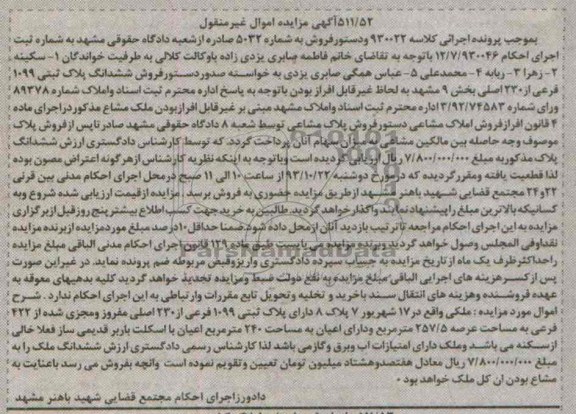 ۵۱۱/۵۲آگهی مزایده اموال غیرمنقول
بموجب پرونده اجرائی کلاسه ۹۳۰۰۲۲ ودستورفروش به شماره ۵۰۳۲ صادره ازشعبه دادگاه حقوقی مشهد به شماره ثبت
اجرای احکام ۱۲/۷/۹۳۰۰۴۶ باتوجه به تقاضای خانم فاطمه صابری یزدی زاده باوکالت کلالی به طرفیت خواندگان ۱- سکینه
۲- زهرا ۳- ربابه ۴- محمدعلی ۵-عباس همگی صابری یزدی به خواسته صدوردستورفروش ششدانگ پلاک ثبتی ۱۰۹۹
فرعی از۲۳۰ اصلی بخش ۹ مشهد به لحاظ غیرقابل افراز بودن باتوجه به پاسخ اداره محترم ثبت اسناد واملاک شماره ۸۹۳۷۸
ورای شماره ۳/۹۲/۷۴۵۸۳ اداره محترم ثبت اسناد واملاک مشهد مبنی بر غیرقابل افرازبودن ملک مشاع مذکوردراجرای ماده
۴ قانون افرازفروش املاک مشاعی دستور فروش پلاک مشاعی توسط شعبه ۸ دادگاه حقوقی مشهد صادرتاپس ازفروش پلاک
موصوف وجه حاصله بین مالکین مشاعی به میزان سهام آنان پرداخت گردد. که توسط کارشناس دادگستری ارزش ششدانگ
پلاک مذکوربه مبلغ ۷/۸۰۰/۰۰۰/۰۰۰ ریال ارزیابی گردیده است وباتوجه به اینکه نظریه کارشناس ازهرگونه اعتراض مصون بوده
لذا قطعیت یافته ومقررگردیده که درمورخ دوشنبه ۹۳/۱۰/۲۲ از ساعت ۱۰ الی ۱۱ صبح درمحل اجرای احکام مدنی بین قرنی
۲۲و۲۴ مجتمع قضایی شهید باهنر مشهد ازطریق مزایده حضوری به فروش برسد. مزایده ازقیمت ارزیابی شده شروع وبه
کسانیکه بالاترین مبلغ راپیشنهادنمایند واگذارخواهد گردید. طالبین به خرید جهت کسب اطلاع بیشتر پنج روزقبل ازبرگزاری
مزایده به این اجرای احکام مراجعه تاترتیب بازدید آنان ازمحل داده شود ضمنا حداقل ۱۰درصد مبلغ موردمزایده ازبرنده مزایده
نقداوفی المجلس وصول خواهد گردید وبرنده مزایده می بایست طبق ماده ۱۲۹ قانون اجرای احکام مدنی الباقی مبلغ مزایده
راحداکثرظرف یک ماه از تاریخ مزایده به حساب سپرده دادگستری واریزوفیش مربوطه ضم پرونده نماید. در غیراین صورت
پس ازکسرهزینه های اجرایی الباقی مبلغ مزایده به نفع دولت ضبط ومزایده تجدید خواهد گردید کلیه بدهیهای معوقه به
عهده فروشنده وهزینه های انتقال سند باخرید و تخلیه وتحویل تابع مقررات وارتباطی به این اجرای احکام ندارد . شرح
اموال مورد مزایده : ملکی واقع در۱۷ شهریور ۷ پلاک ۸ دارای پلاک ثبتی ۱۰۹۹ فرعی از۲۳۰ اصلی مفروز ومجزی شده از ۴۲۲
فرعی به مساحت عرصه ۲۵۷/۵ مترمربع ودارای اعیان به مساحت ۲۴۰ مترمربع اعیان با اسکلت باربر قدیمی ساز فعلا خالی
ازسکنه می باشد وملک دارای امتیازات اب وبرق وگازمی باشد لذا کارشناس رسمی دادگستری ارزش ششدانگ ملک را به
مبلغ ۷/۸۰۰/۰۰۰/۰۰۰ ریال معادل هفتصدوهشتاد میلیون تومان تعیین وتقویم نموده است وانچه بفروش می رسد باعنایت به
مشاع بودن ان کل ملک خواهد بود ۰
دادورزاجرای احکام مجتمع قضایی شهید باهنر مشهد